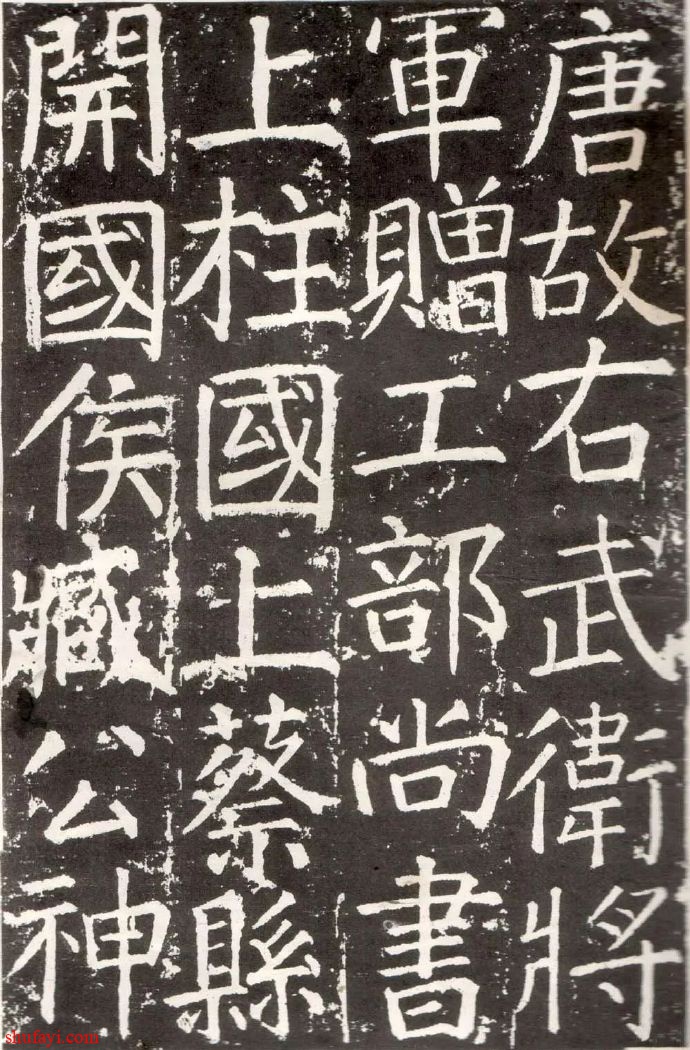 唐故右武衛將
軍贈工部尚書
上柱國上蔡縣
開國侯臧公神
shufayi.com